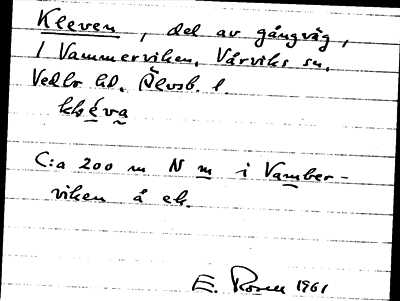 Kleven, del av gångväg,
i Vammerviken, Vårviks sn,
Vedbo hd, Älvsb. l.
kléva
C:a 200 m N m i Vamber-
viken å ek.
E. Rosell 1961